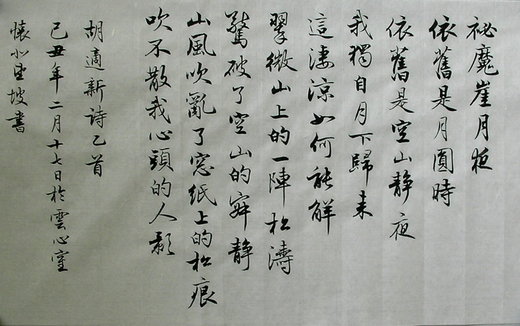 祕魔崖月夜
依舊是月圓時
依舊是空山靜夜
我獨自月下歸来
這淒涼如何能解
翠微山上的一陣松濤
驚破了空山的寂靜
山風吹亂了窓紙上的松痕
吹不散我心頭的人影
胡適新詩乙首
己丑年二月十七日於雲心室
懷
坡書